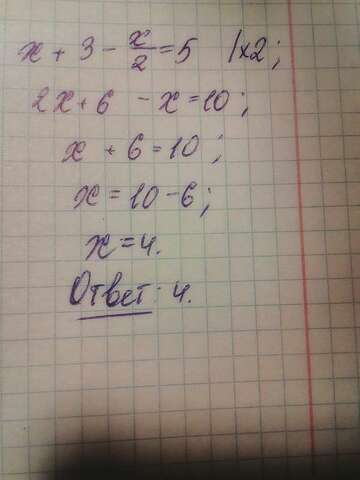 x + 3 - x/2 = 5 |x2;
2x + 6 - x = 10;
x + 6 = 10;
x = 10 - 6;
x = 4.
Ответ: 4.